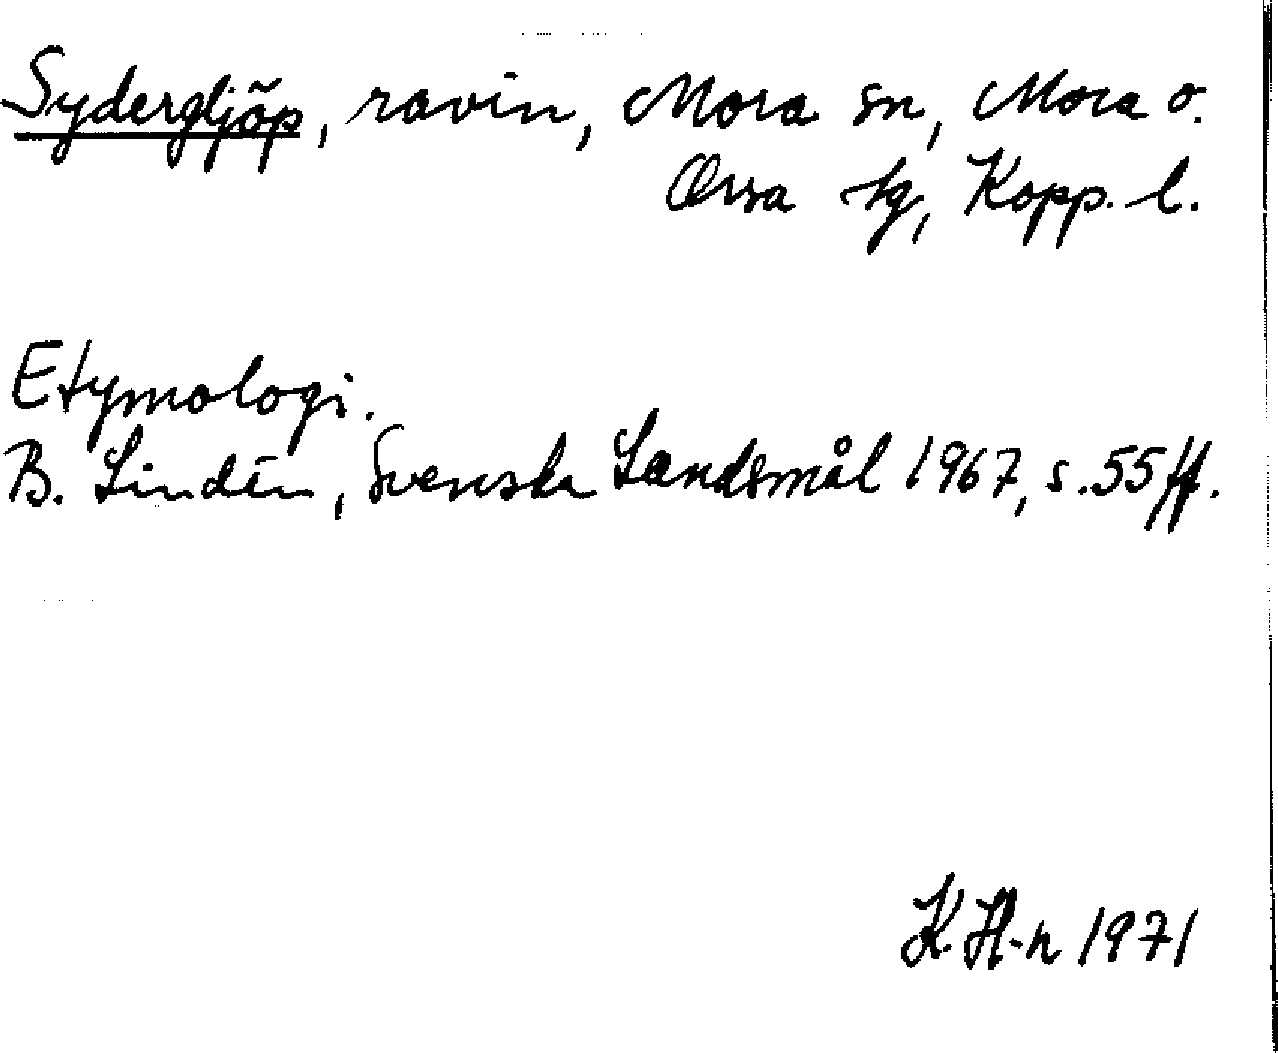 Sydergljöp, ravin, Mora sn, Mora o.
Orsa tg, Kopp. l.
Etymologi.
B. Lindén, Svenska Landsmål 1967, s. 55 ff.
K. H-n 1971